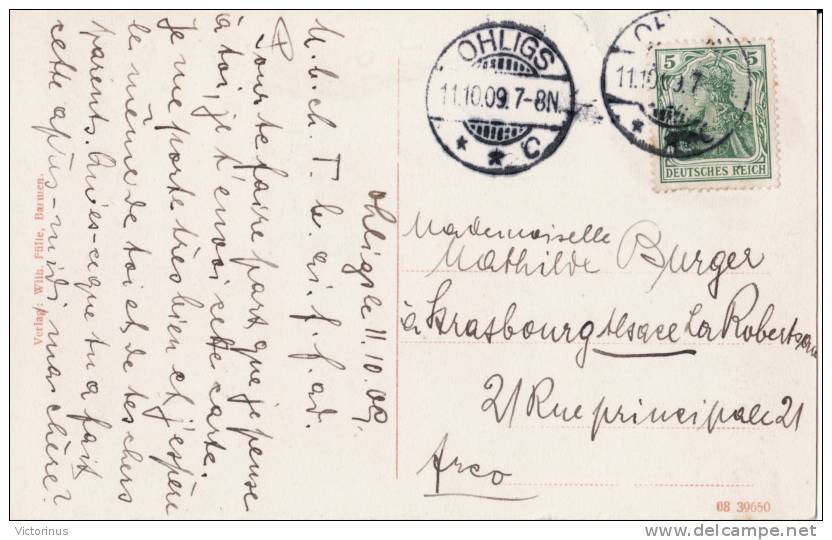 ohligs le 11.10.09.
M. b. ch. T. b. ai. f. f. ad.
Pour te faire part que je pense
à toi, je t'envoi cette carte.
Je me porte très bien et j'espère
le même de toi et de tes chers
parents. Qu'es-ce que tu a fait
cette après-midi, ma chère?
Verlag: Wilh. Fülle, Barmen.
OHLIGS
11.10.09.7-8N.
* * C
11.10 09.7
5 5
DEUTSCHES REICH
Mademoiselle
Mathilde Burger
à Strasbourg Alsace La Robertsau
21 Rue principale 21
08 39650
Victorinus
delcampe.net